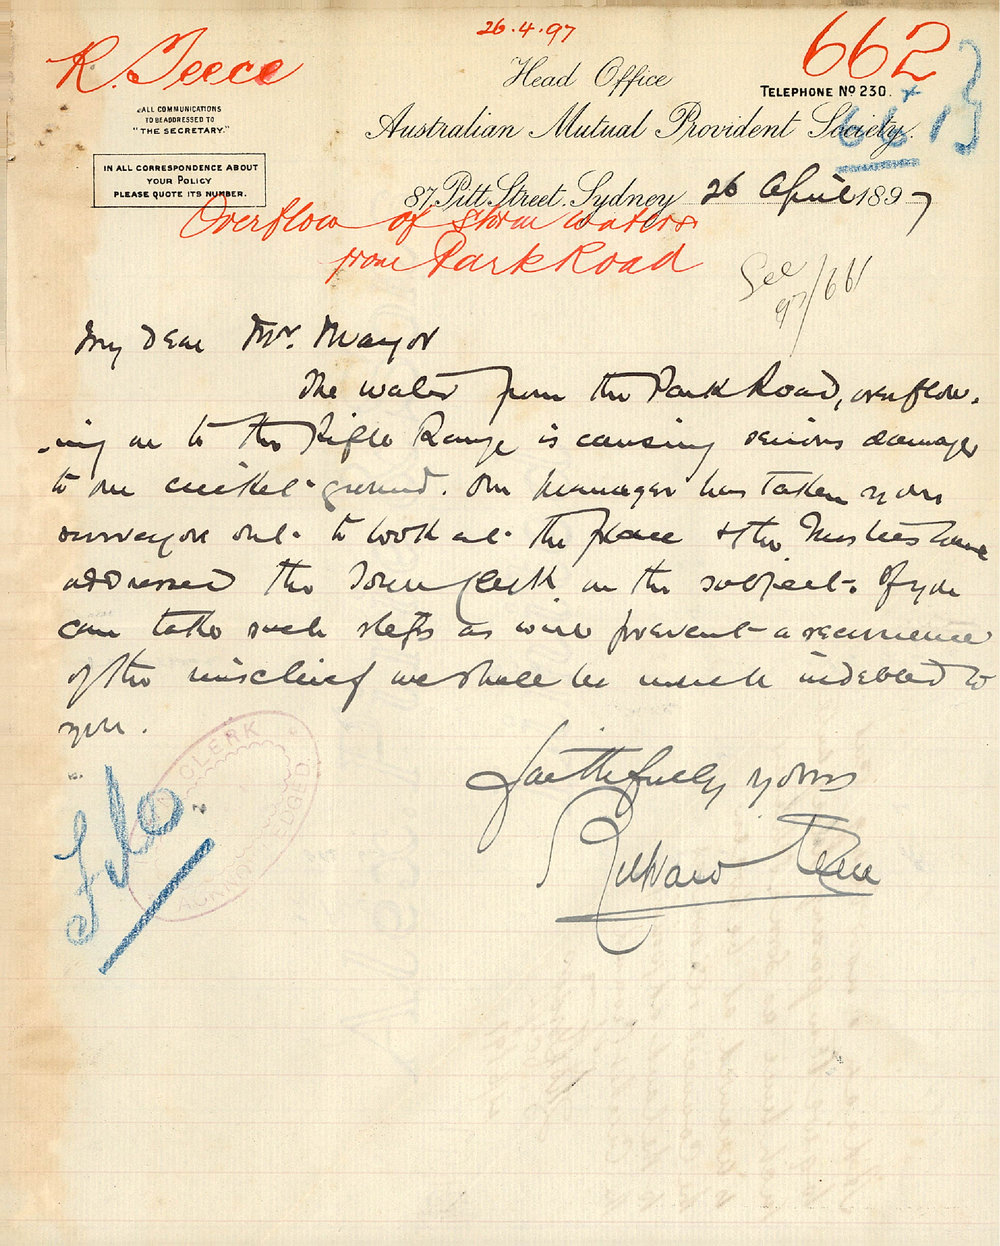 26.4.97
R. Teece
662
Head Office
TELEPHONE Nº 230.
ALL COMMUNICATIONS
TO BE ADDRESSED TO
"THE SECRETARY."
Australian Mutual Provident Society.
661
IN ALL CORRESPONDENCE ABOUT
YOUR POLICY
PLEASE QUOTE ITS NUMBER.
87, Pitt Street, Sydney 26 April 1897
Overflow of storm waters
from Park Road
See
97/661
My Dear Mr. Mayor
The water from the Park Road, overflow-
-ing on to the Rifle Range is causing serious damage
to our cricket-ground. Our Manager has taken your
surveyor out to look at the place & the Trustees have
addressed the Town Clerk on the subject. If you
can take such steps as will prevent a recurrence
of the mischief we shall be much indebted to
you.
Faithfully yours
Richard Teece
File
CLERK
ACKNOWLEDGED